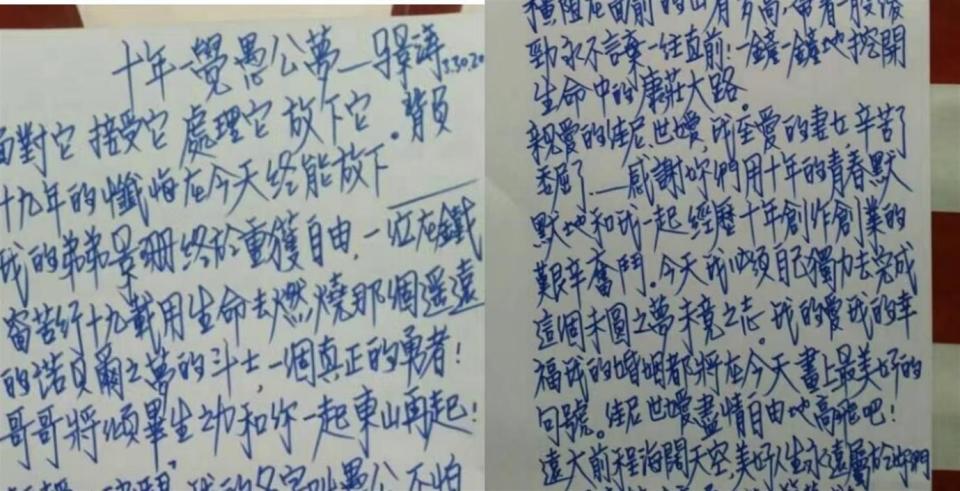 十年一覺愚公夢—
面對它 接受它 處理它 放下它。背負
十九年的懺悔在今天终能放下
我的弟弟景珊终於重獲自由,一位在鐵
窗苦行十九載用生命去燃燒那個遥遠
的諾貝爾之夢的斗士,一個真正的勇者!
哥哥將傾畢生之功和你一起東山再起!
我的名字叫愚公 不怕
橫阻在面前的山有多高,帶着一股滚
勁永不言棄一往直前!一鏟一鏟地挖開
生命中的康莊大路。
親愛的佳尼、世嫒,我至愛的妻女,辛苦了
委屈了——感謝妳們用十年的青春默
默地和我一起經歷十年創作創業的
艱辛奮鬥。今天我必須自己獨力去完成
這個未圓之夢未竟之志。我的愛我的幸
福我的婚姻都將在今天畫上最美好的
句號。佳尼、世嫒盡情自由地高飛吧!
遠大前程海闊天空,美好人生永遠屬於妳們